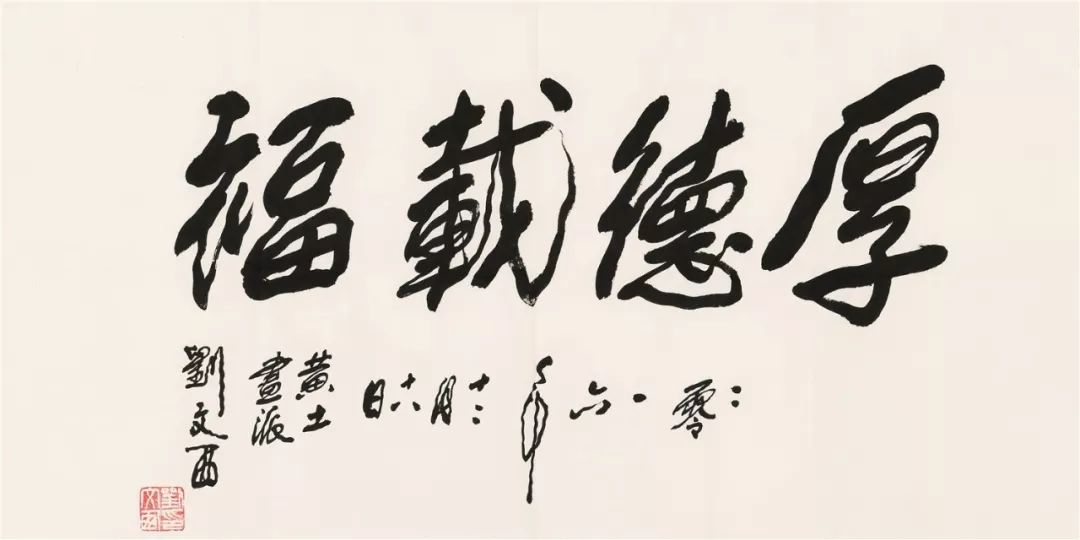 厚德載福
二零一六年十二月十六日
黄土
畫派
劉文西